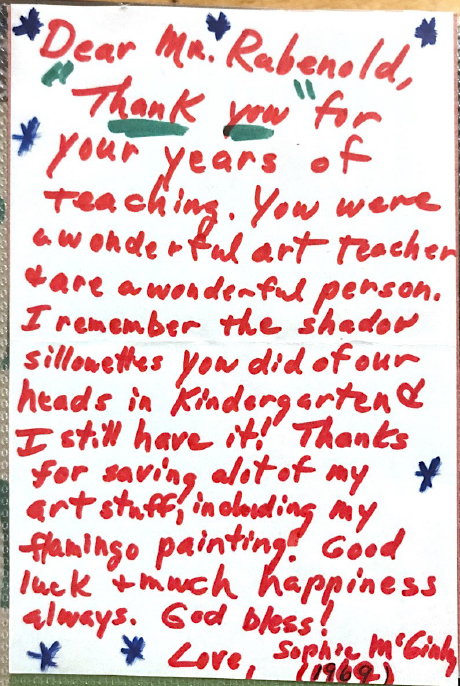 Dear Mr. Rabenold,
"Thank you" for
your years of
teaching. You were
a wonderful art teacher
& are a wonderful person.
I remember the shadow
sillouettes you did of our
heads in Kindergarten &
I still have it! Thanks
for saving alot of my
art stuff, including my
flamingo painting! Good
luck + much happiness
always. God bless!
Love, Sophie McGinley
(1969)